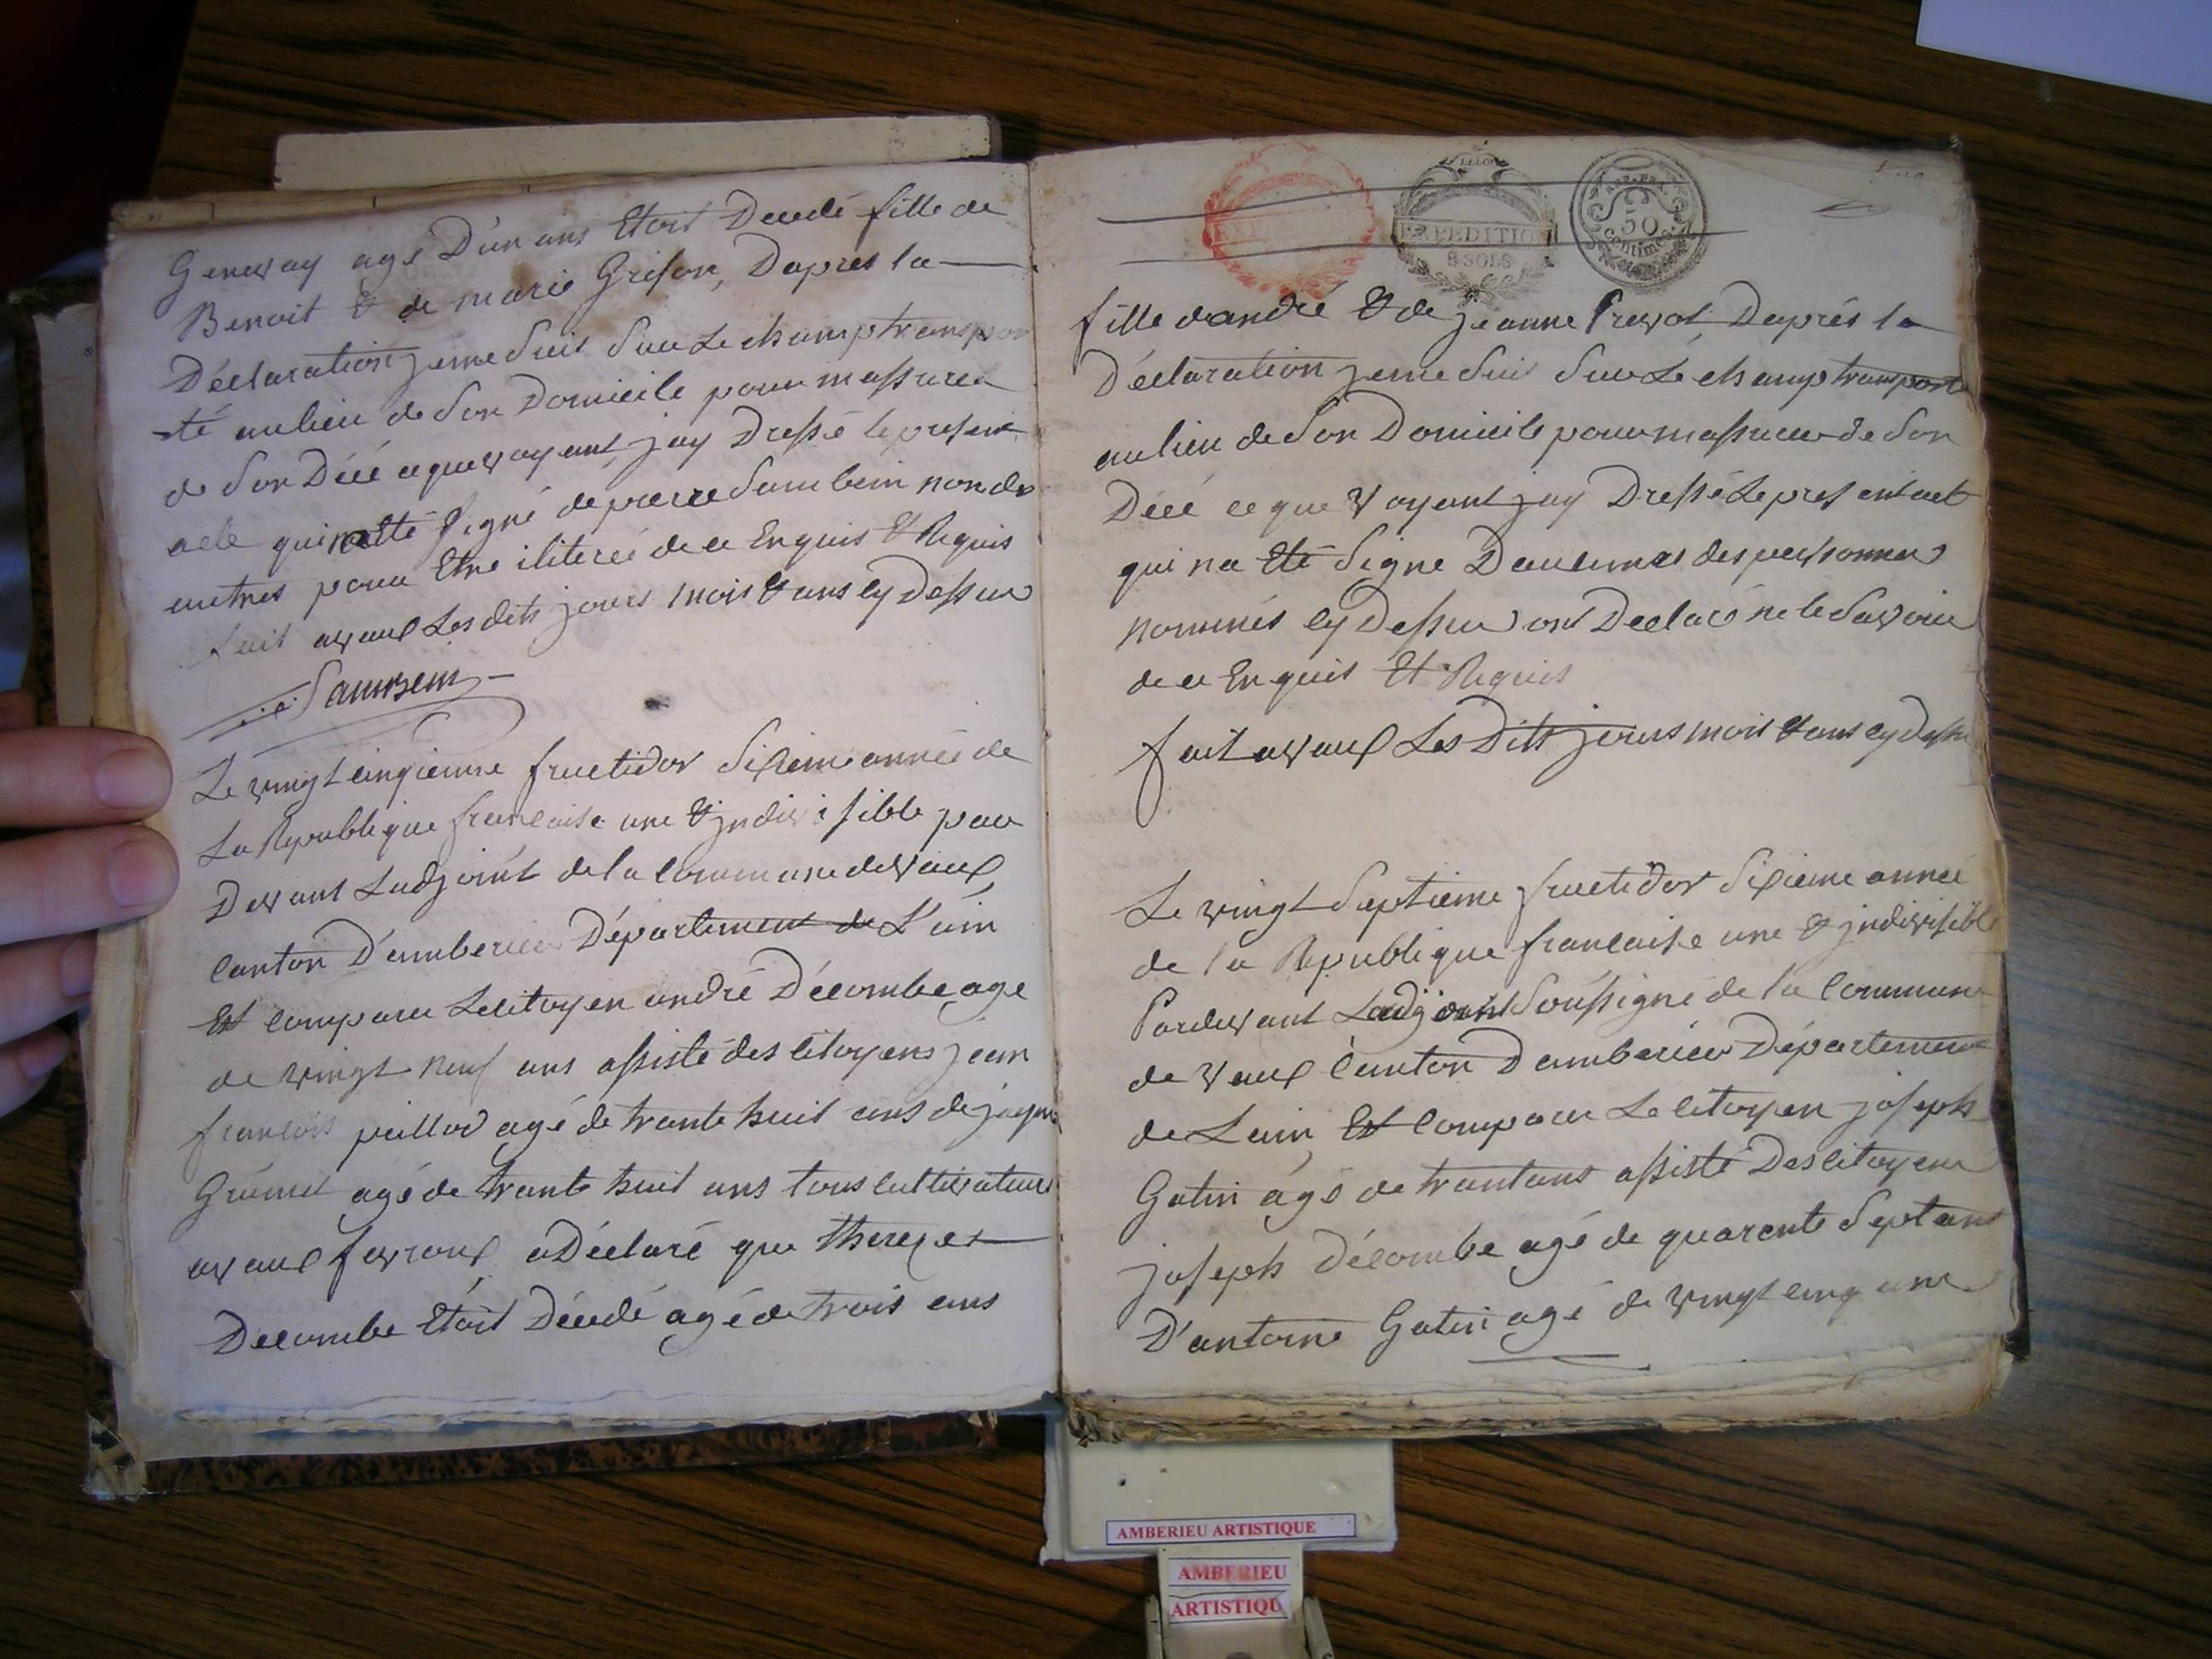 Genevay agé D'un ans Etoit Décédé fille de
Benoit & de marie Grison, Dapres la
Déclaration jeme suis sur Le champ transpor
té au lieu de son Domicile pour massurer
de son Décé ce que voyant, jay Dressé le présent
acte qui na été signé de pierre Sambein non des
autres pour Etre iliteré de ce Enquis & Requis
fait a vaux Les dits jours mois & ans cy Dessus
Sambein
Le vingt cinqieme fructidor sixieme année de
La Republique francaise une & jndivisible par
Devant Ladjoint de la Commune de vaux,
Canton D'amberieu Département de L'ain
Est comparu Lecitoyen andré Décombe age
de vingt neuf ans assisté des citoyens jean
francois peillod agé de trante huit ans de jaque
agé de trante huit ans tous cultivateurs
a vaux fevroux a Déclaré que
Decombe Etoit Décédé agé de trois ans
EXPEDITION
8 SOLS
REP. FRA.
50
centimes
fille dandré & de jeanne Prevot Daprés la
Déclaration jeme suis sur Le champ transporté
au lieu de son Domicile pour massurer de son
Décé ce que voyant jay Dressé Le present act
qui na été signe Daucunes des personnes
nommés cy Dessus ont Declaré ne le savoir
de ce Enquis Et Requis
fait a vaux Les Dits jours mois & ans cy Dessu
Le vingt septieme fructidor sixieme année
de la Republique francaise une & jndivisible
Pardevant Ladjoint soussigné de la Commune
de vaux Canton Damberieu Département
de Lain, Est comparu Le citoyen joseph
Gatin agé de trantans assisté Des citoyens
joseph Décombe agé de quarante septans
D'antoine Gatin agé de vingt cinq ans
AMBERIEU ARTISTIQUE
AMBERIEU
ARTISTIQU